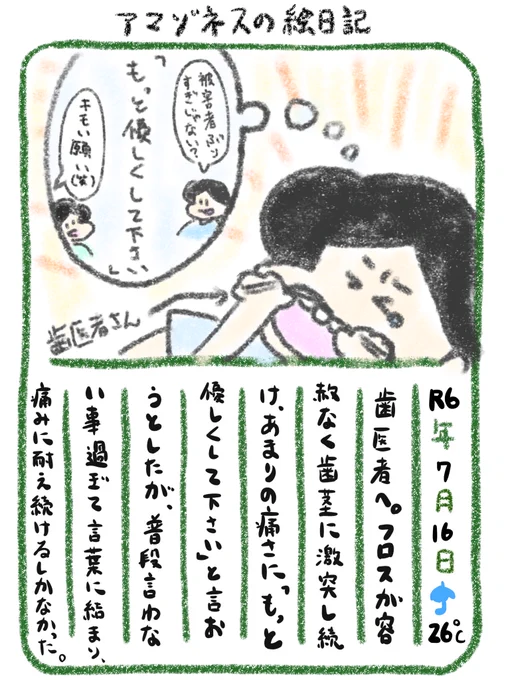 アマゾネスの絵日記
被害者ぶり
すぎじゃない?
「もっと優しくして下さい」
キモい願い(笑)
歯医者さん
R6年7月16日 26℃
歯医者へ。フロスが容
赦なく歯茎に激突し続
け、あまりの痛さに「もっと
優しくして下さい」と言お
うとしたが、普段言わな
い事過ぎて言葉に詰まり、
痛みに耐え続けるしかなかった。